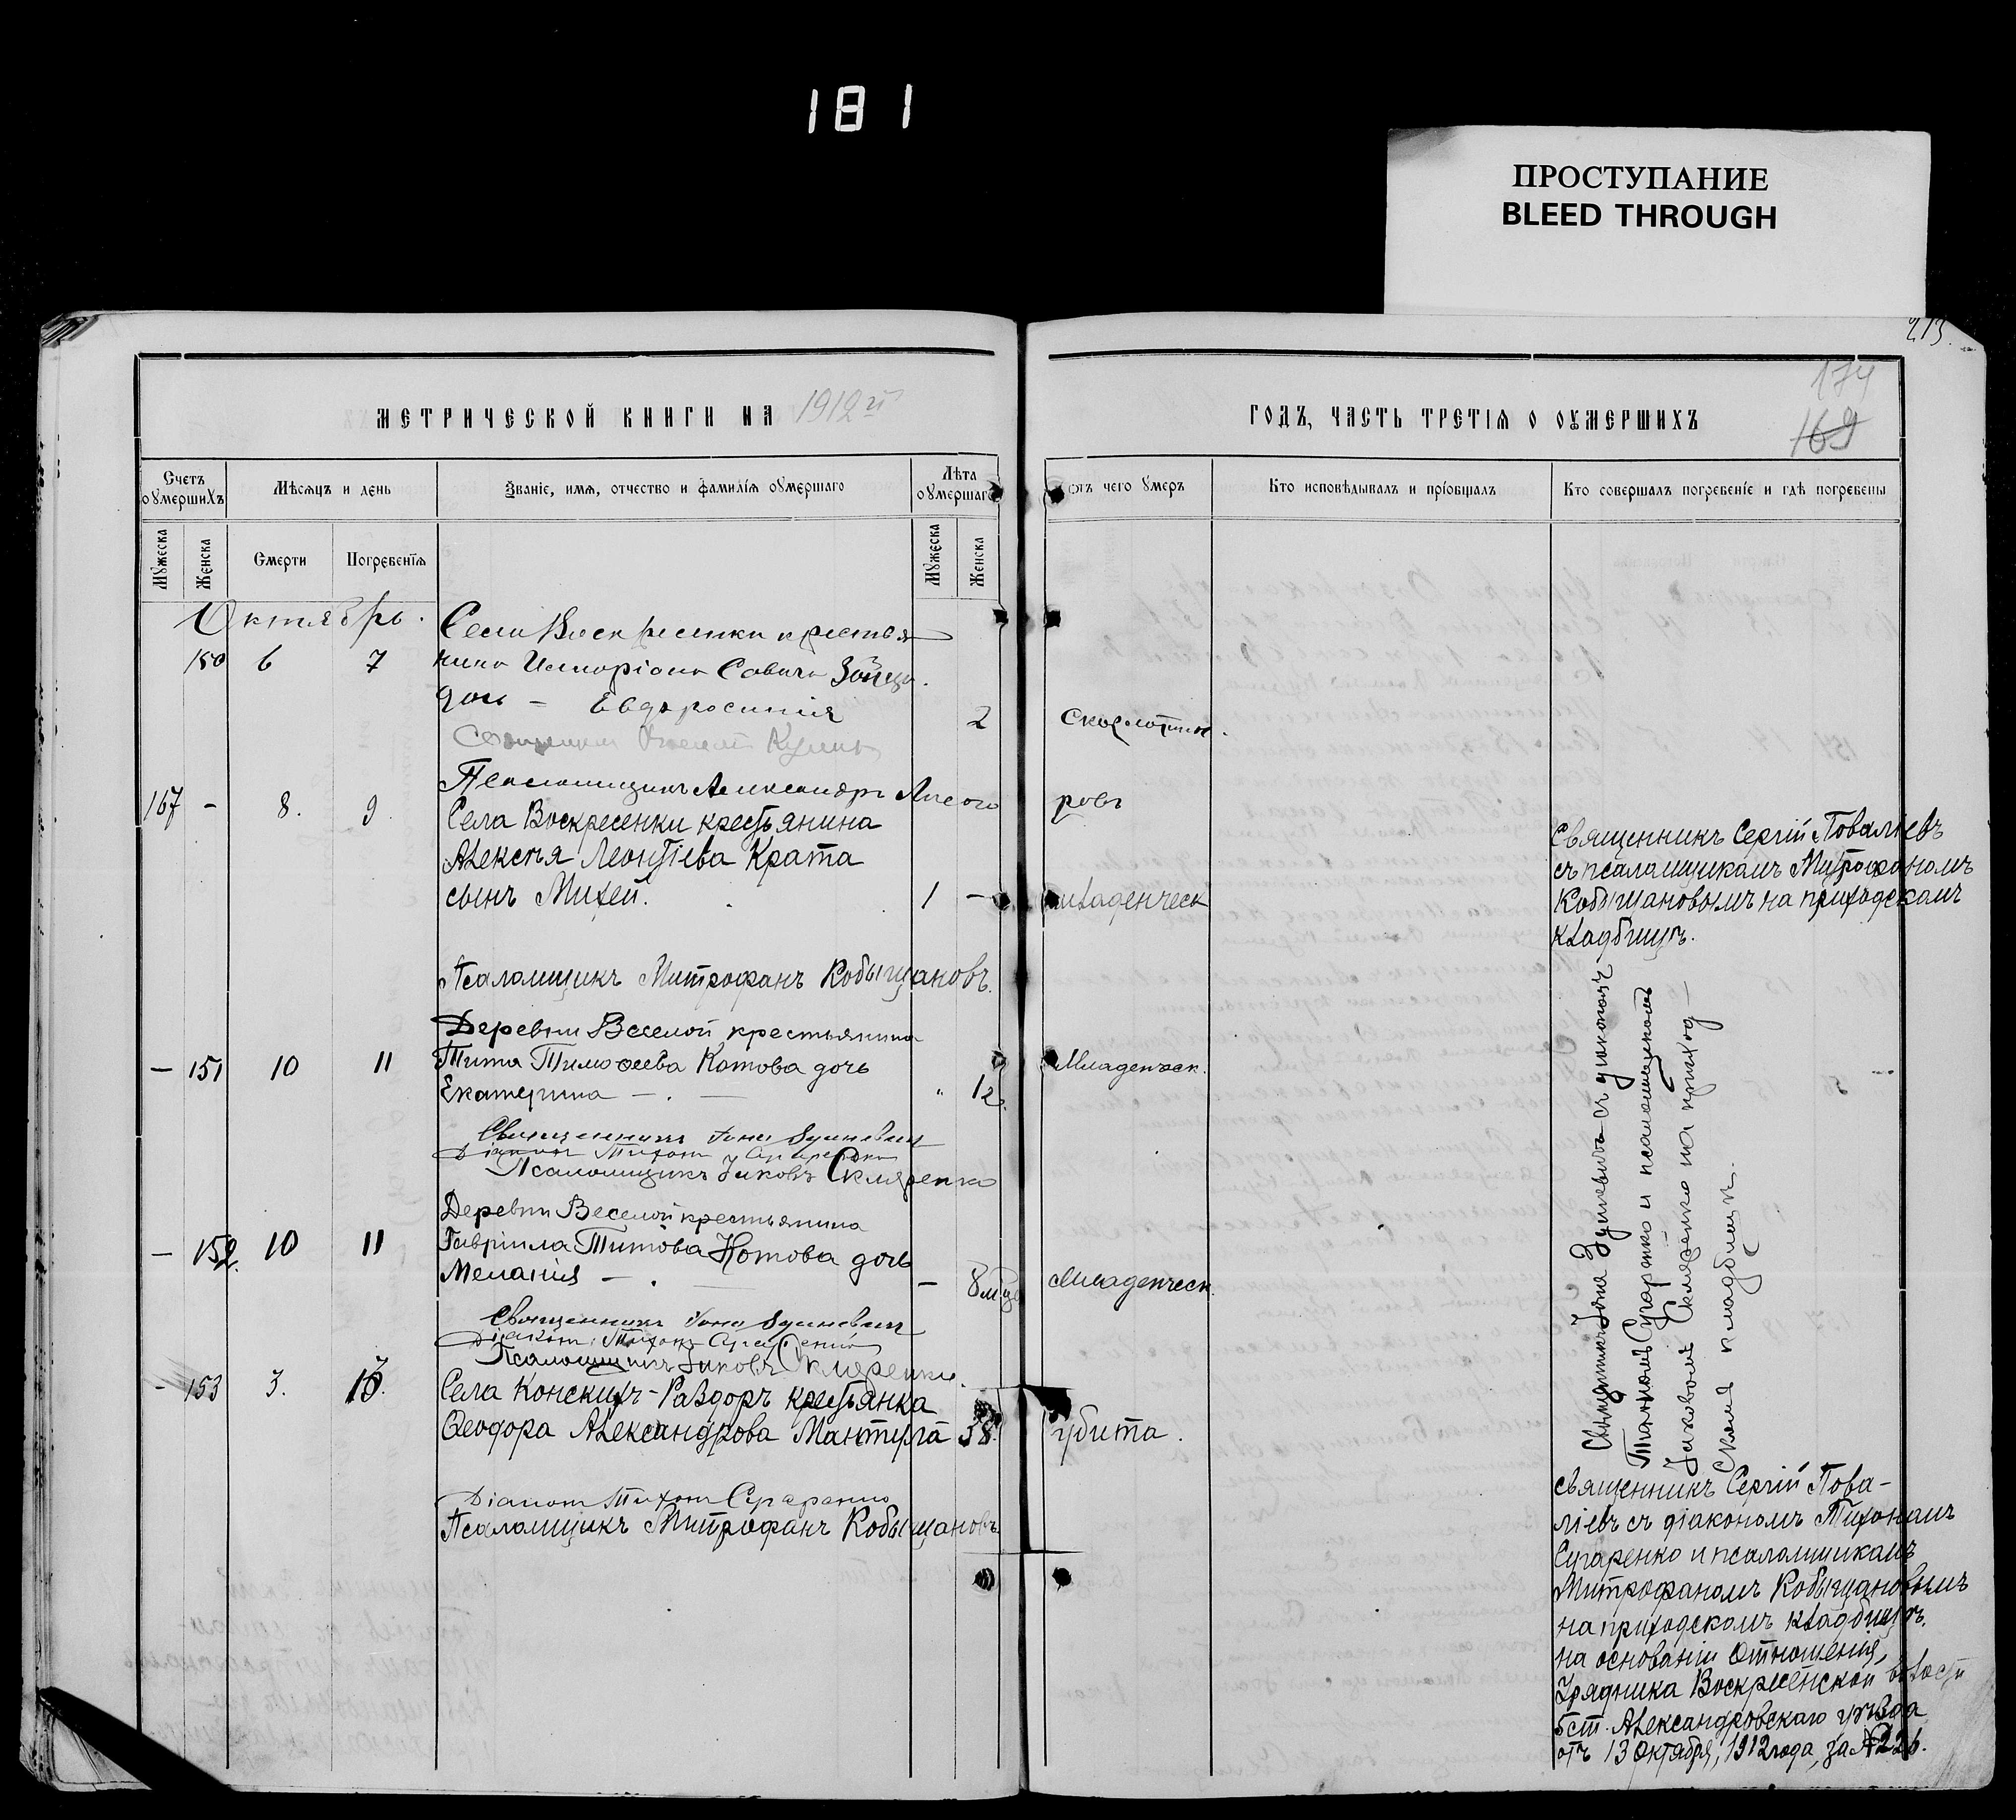 181
ПРОСТУПАНИЕ
BLEED THROUGH
213.
174
169
МЕТРИЧЕСКОЙ КНИГИ НА 1912й
ГОДЪ, ЧАСТЬ ТРЕТІЯ О ОУМЕРШИХЪ
Счетъ оумершихъ
Мѣсяцъ и день
Званіе, имя, отчество и фамилія оумершаго
Лѣта оумершаго
отъ чего умеръ
Кто исповѣдывалъ и пріобщалъ
Кто совершалъ погребеніе и гдѣ погребены
Мужеска
Женска
Смерти
Погребенія
Мужеска
Женска
Октябрь.
Села Воскресенки крестья
150 6 7 нина Савича
дочь – Евфросинія 2 Скарлотин.
Псаломщикъ Александръ
167 – 8. 9.
Села Воскресенки крестьянина
Алексѣя Леонтіева Крата
сынъ Михей. 1 – младенческ
Священникъ Сергій Поваліевъ
съ псаломщикомъ Митрофаномъ
Кобыщановымъ на приходскомъ
кладбищѣ.
Псаломщикъ Митрофанъ Кобыщановъ.
Деревни Веселой крестьянина
– 151 10 11 Тита Тимофеева Котова дочь Младенческ.
Екатерина – . — " 12
Священникъ Іона
Діаконъ Тихонъ Сугаренко
Псаломщикъ Іаковъ Скляренко
Деревни Веселой крестьянина
– 152. 10 11 Гавріила Титова Котова дочь
Меланія – . — – 8 м-цъ Младенческ.
Священникъ Іона
Діаконъ Тихонъ Сугаренко
Псаломщикъ Іаковъ Скляренко.
Священникъ Іона съ діакономъ
Тихономъ Сугаренко и псаломщикомъ
Іаковомъ Скляренко на приход–
скомъ кладбищѣ.
– 153 3. 13. Села Конскихъ-Раздоръ крестьянка
Ѳеодора Александрова 38. убита.
Діаконъ Тихонъ Сугаренко
Псаломщикъ Митрофанъ Кобыщановъ.
священникъ Сергій Пова-
ліевъ съ діакономъ Тихономъ
Сугаренко и псаломщикомъ
Митрофаномъ Кобыщановымъ
на приходскомъ кладбищѣ.
на основаніи Отношенія,
Урядника Воскресенской волости
5 ст. Александровскаго уѣзда
отъ 13 Октября, 1912 года, за № 226.